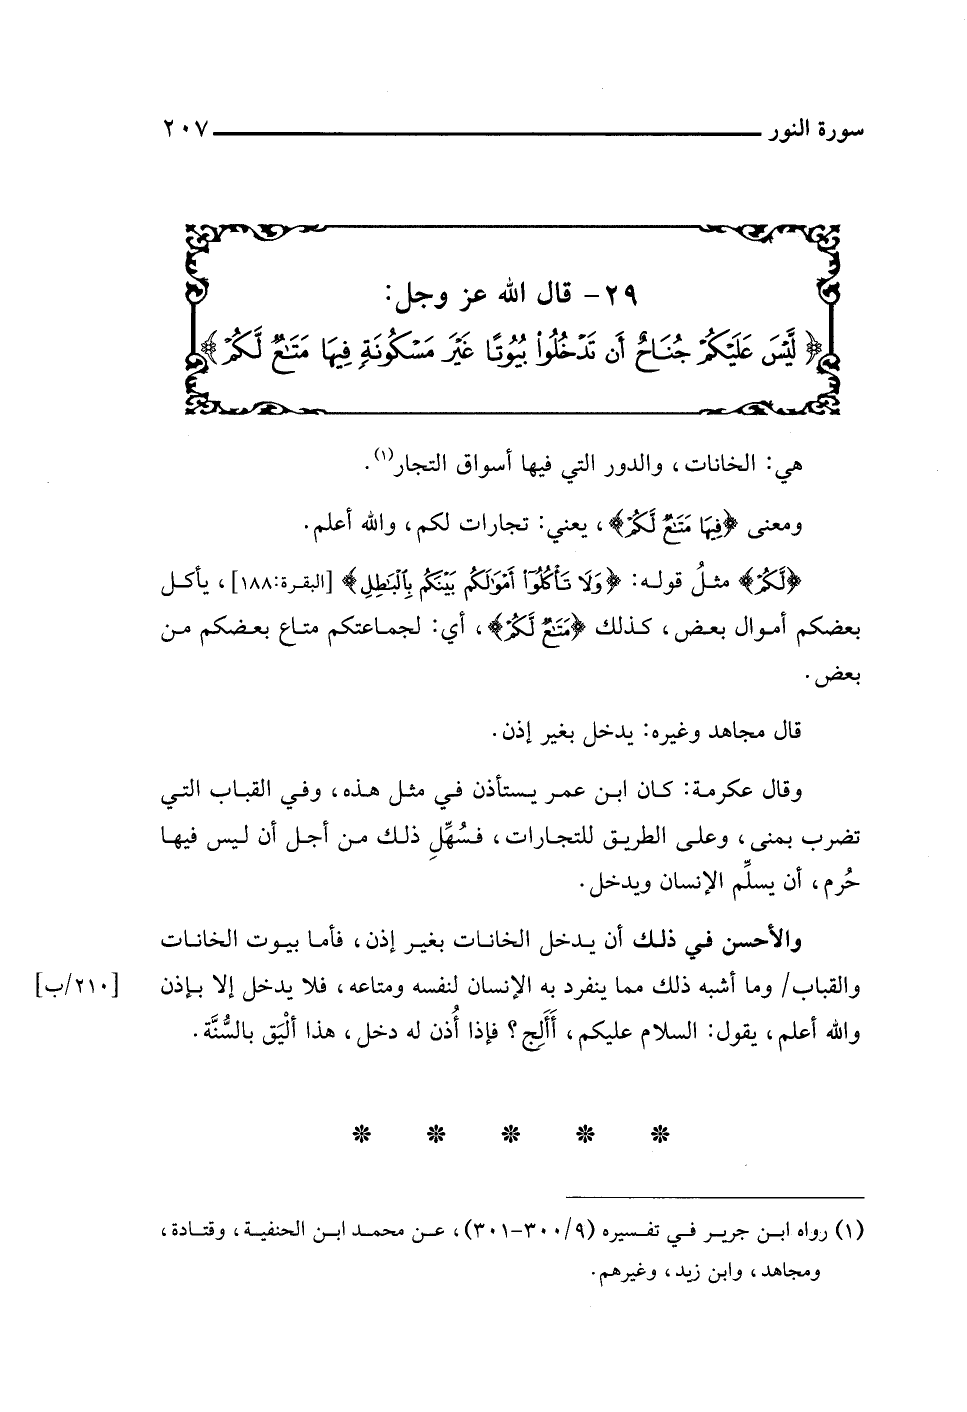 سورة النور ٢٠٧
٢٩- قال الله عز وجل:
﴿لَّيْسَ عَلَيْكُمْ جُنَاحٌ أَن تَدْخُلُواْ بُيُوتًا غَيْرَ مَسْكُونَةٍ فِيهَا مَتَٰعٌ لَّكُمْ﴾
هي: الخانات، والدور التي فيها أسواق التجار(١).
ومعنى ﴿فِيهَا مَتَٰعٌ لَّكُمْ﴾، يعني: تجارات لكم، والله أعلم.
﴿لَّكُمْ﴾ مثلُ قوله: ﴿وَلَا تَأْكُلُوٓاْ أَمْوَٰلَكُم بَيْنَكُم بِٱلْبَٰطِلِ﴾ [البقرة:١٨٨]، يأكل
بعضكم أموال بعض، كذلك ﴿مَتَٰعٌ لَّكُمْ﴾، أي: لجماعتكم متاع بعضكم من
بعض.
قال مجاهد وغيره: يدخل بغير إذن.
وقال عكرمة: كان ابن عمر يستأذن في مثل هذه، وفي القباب التي
تضرب بمنى، وعلى الطريق للتجارات، فسُهِّلِ ذلك من أجل أن ليس فيها
حُرم، أن يسلِّم الإنسان ويدخل.
والأحسن في ذلك أن يدخل الخانات بغير إذن، فأما بيوت الخانات
والقباب/ وما أشبه ذلك مما ينفرد به الإنسان لنفسه ومتاعه، فلا يدخل إلا بإذن [٢١٠/ب]
والله أعلم، يقول: السلام عليكم، أَأَلِج؟ فإذا أُذن له دخل، هذا ألْيَق بالسُّنَّة.
❊ ❊ ❊ ❊ ❊
(١) رواه ابن جرير في تفسيره (٩/ ٣٠٠-٣٠١)، عن محمد ابن الحنفية، وقتادة،
ومجاهد، وابن زيد، وغيرهم.